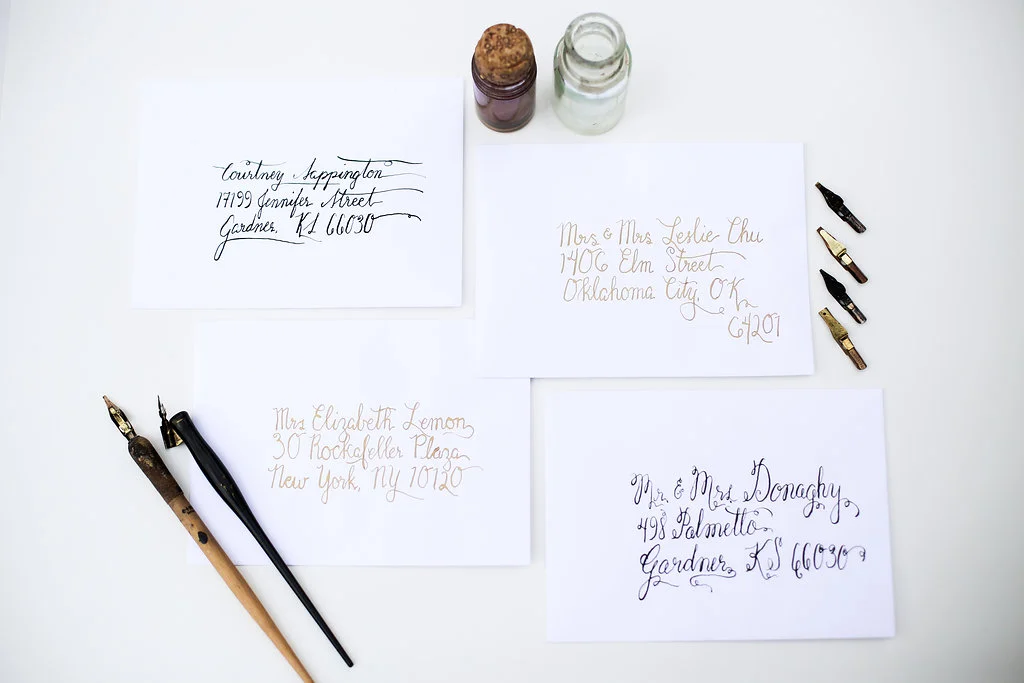 Courtney Sappington
17199 Jennifer Street
Gardner, KS 66030
Mrs & Mrs Leslie Chu
1406 Elm Street
Oklahoma City, OK
64201
Mrs Elizabeth Lemon
30 Rockafeller Plaza
New York, NY 10120
Mr. & Mrs. Donaghy
498 Palmetto
Gardner, KS 66030